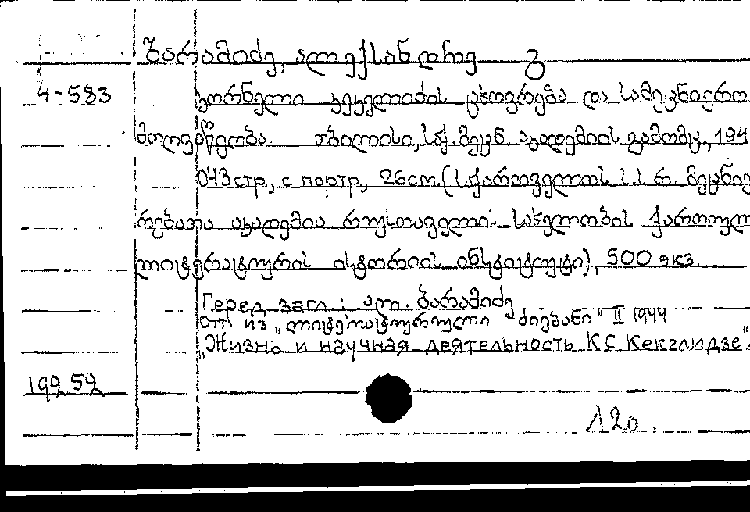 ბარამიძე, ალექსანდრე გ
4-583 კორნელი კეკელიძის ცხოვრება და სამეცნიერო
მოღვაწეობა. თბილისი, საქ. მეცნ. აკადემიის გამომც., 194
043 стр., с портр., 26 см. (საქართველოს ს.ს.რ. მეცნიე
რებათა აკადემია რუსთაველის სახელობის ქართული
ლიტერატურის ისტორიის ინსტიტუტი), 500 экз.
Перед загл: ალ. ბარამიძე
отт из „ლიტერატურული ძიებანი" II 1944
„Жизнь и научная деятельность К С Кекелидзе"
199 52
120.